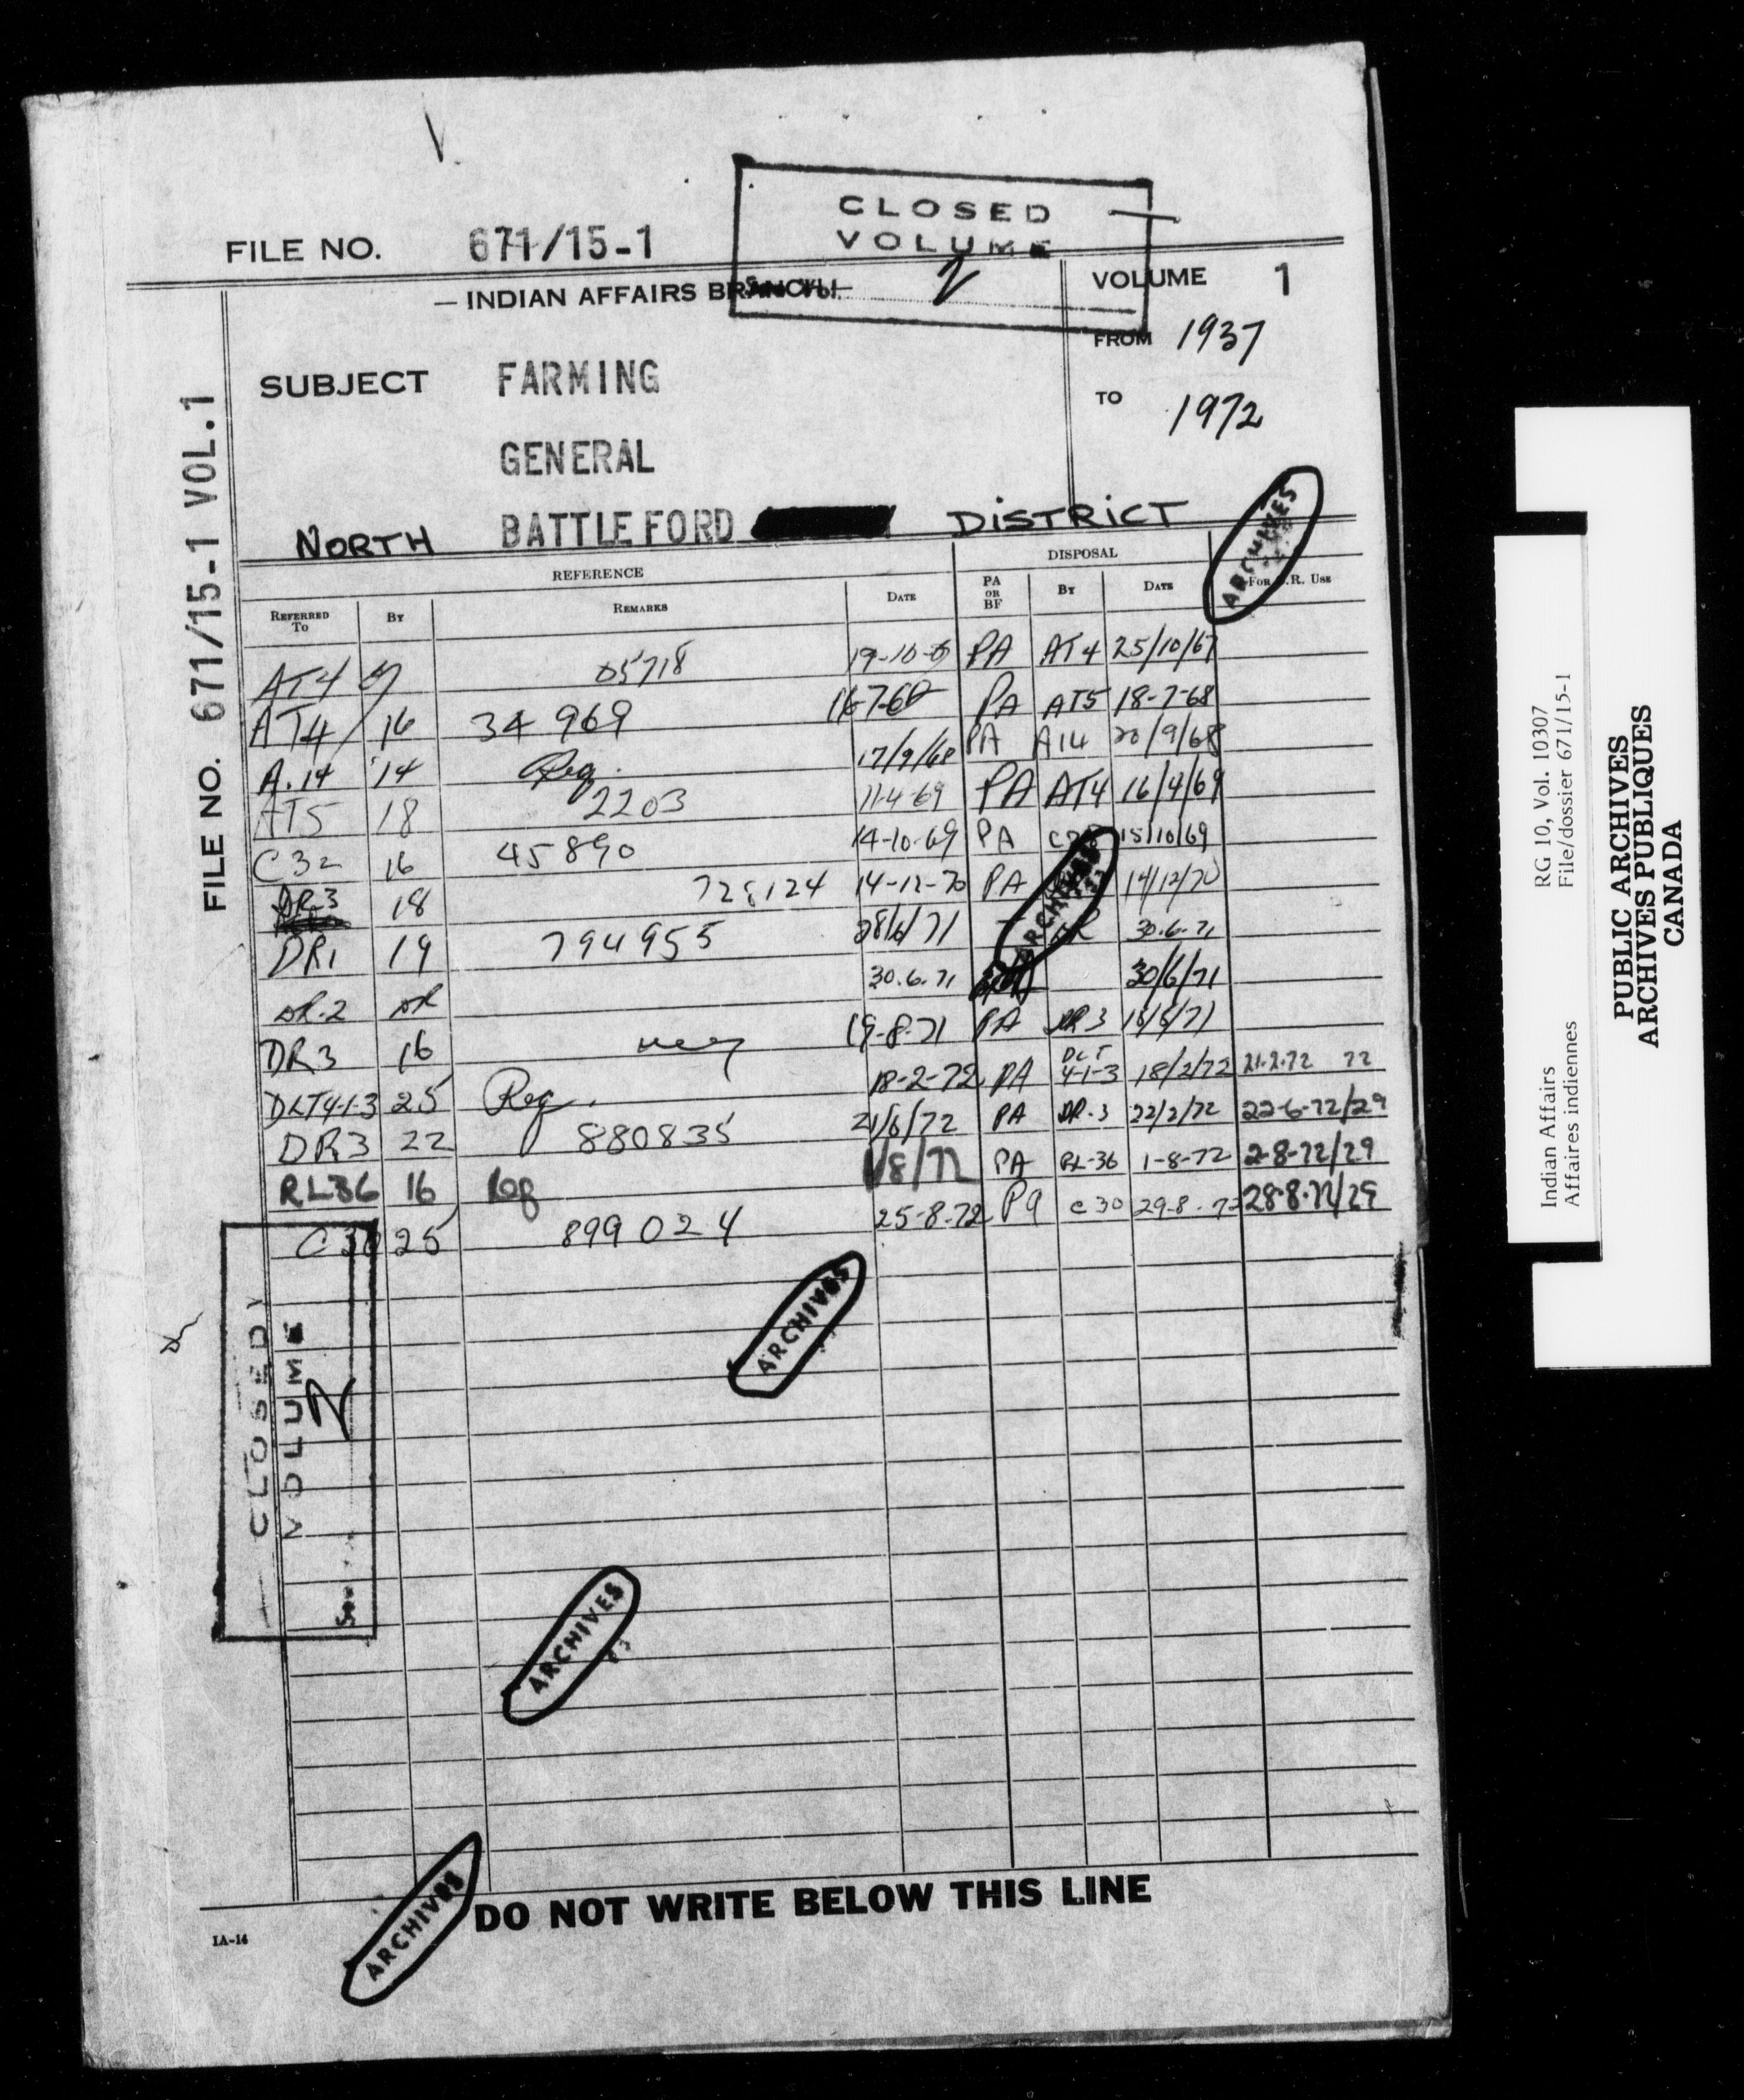 CLOSED
VOLUME
2
FILE NO. 671/15-1
— INDIAN AFFAIRS BRANCH
VOLUME 1
FROM 1937
TO 1972
SUBJECT FARMING
GENERAL
NORTH BATTLEFORD DISTRICT
ARCHIVES
FILE NO. 671/15-1 VOL.1
REFERENCE DISPOSAL
REFERRED TO BY REMARKS DATE PA OR BF BY DATE FOR R. USE
AT4 05718 19-10- PA AT4 25/10/67
AT4 16 34 969 16-7-68 PA AT5 18-7-68
A.14 14 Req. 17/9/68 PA A14 20/9/68
AT5 18 2203 11-4-69 PA AT4 16/4/69
C32 16 45890 14-10-69 PA 15/10/69
DR3 18 728124 14-12-70 PA 14/12/70
ARCHIVES
DR1 19 794955 28/6/71 30.6.71
DR.2 DR 30.6.71 30/6/71
DR3 16 19-8-71 PA DR3
DLT4-1-3 25 Req. 18-2-72 PA DLT 4-1-3 18/2/72 21.2.72 22
DR3 22 880835 21/6/72 PA DR.3 22/2/72 22-6-72/29
RL36 16 Req 1/8/72 PA RL-36 1-8-72 2-8-72/29
C30 25 899024 25-8-72 PA C30 29.8.72 28.8.72/29
CLOSED
VOLUME
2
ARCHIVES
ARCHIVES
ARCHIVES
DO NOT WRITE BELOW THIS LINE
IA-14
Indian Affairs RG 10, Vol. 10307
Affaires indiennes File/dossier 671/15-1
PUBLIC ARCHIVES
ARCHIVES PUBLIQUES
CANADA